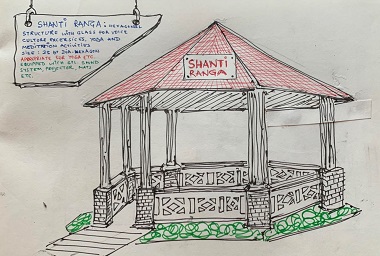 SHANTI RANGA: HEXAGONAL
STRUCTURE WITH GLASS FOR VOICE
CULTURE EXCERSICES, YOGA AND
MEDITATION ACTIVITIES
SIZE: 25 FT DIA. HEXAGON
APPROPRIATE FOR YOGA ETC.
EQUIPPED WITH SOUND
SYSTEM, PROJECTOR, MATS
ETC.
SHANTI
RANGA